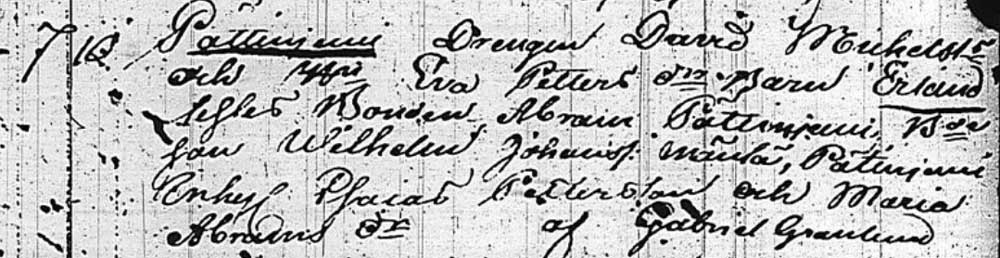 7 18 Pättinjemi Drengen David Michelss:
och H:u Eva Petters Dr Barn Erland
test: Bonden Abram Pättinjemi, Bde
son Wilhelm Johanss. Mäntä, Pätinjemi
Enkl Petterson och Maria
Abrams Dr af Gabriel Granlund